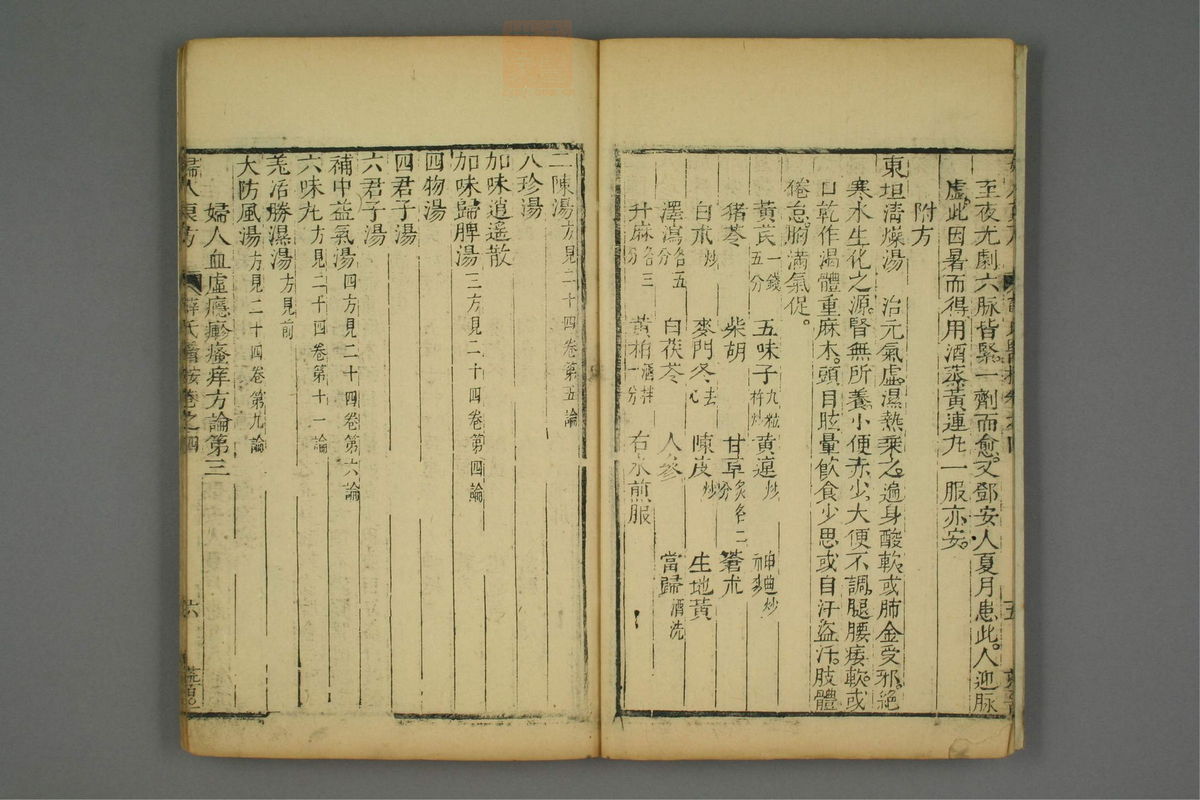 至夜尤劇六脉皆緊一劑而愈又鄧安人夏月患此人迎脉
虛此因暑而得用酒蒸黃連丸一服亦安
附方
東垣清燥湯 治元氣虛濕熱乘之遍身酸軟或肺金受邪絕
寒水生化之源腎無所養小便赤少大便不調腿腰痿軟或
口乾作渴體重麻木頭目眩暈飲食少思或自汗盜汗肢體
倦怠胸滿氣促
黃芪一錢五分 五味子九粒杵炒 黃連炒 神麯炒
猪苓 柴胡 甘草炙各二分 蒼朮
白朮炒 麥門冬去心 陳皮炒 生地黃
澤瀉各五分 白茯苓 人參 當歸酒洗
升麻各三分 黃柏酒拌一分 右水煎服
二陳湯方見二十四卷第五論
八珍湯
加味逍遙散
加味歸脾湯三方見二十四卷第四論
四物湯
四君子湯
六君子湯
補中益氣湯四方見二十四卷第六論
六味丸方見二十四卷第十一論
羌活勝濕湯方見前
大防風湯方見二十四卷第九論
婦人血虛癮疹瘙痒方論第三
婦人良方 薛氏醫按卷之四 六